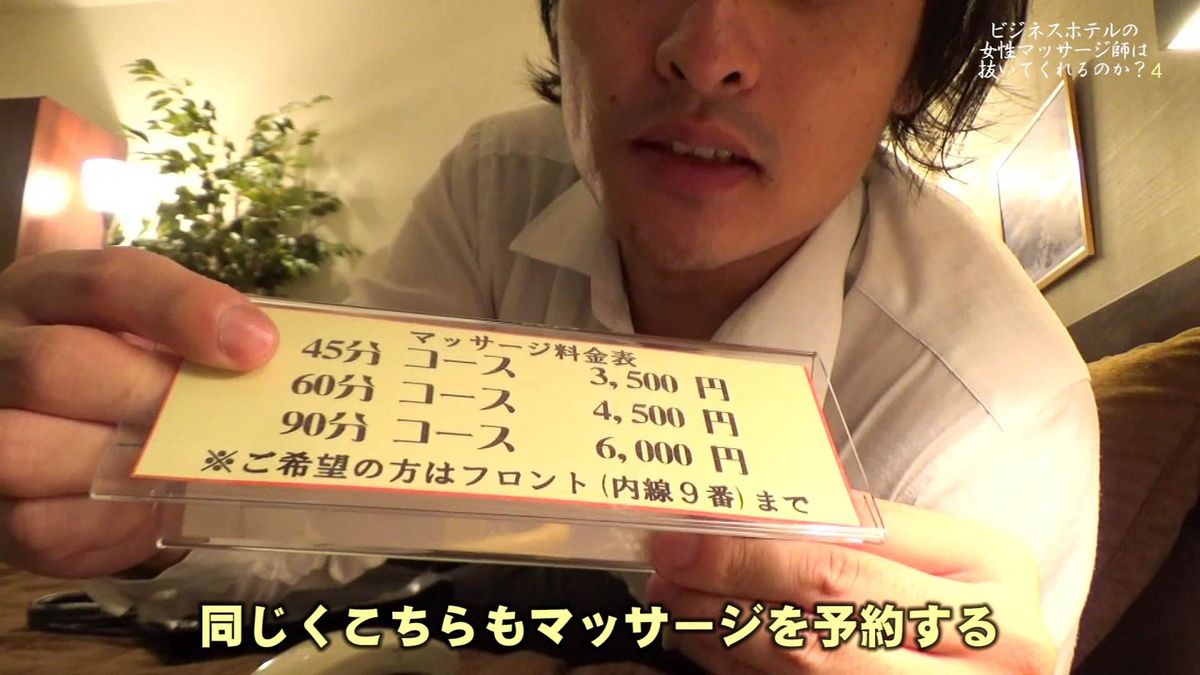 ビジネスホテルの
女性マッサージ師は
抜いてくれるのか？4
マッサージ料金表
45分 コース 3,500 円
60分 コース 4,500 円
90分 コース 6,000 円
※ご希望の方はフロント(内線9番)まで
同じくこちらもマッサージを予約する